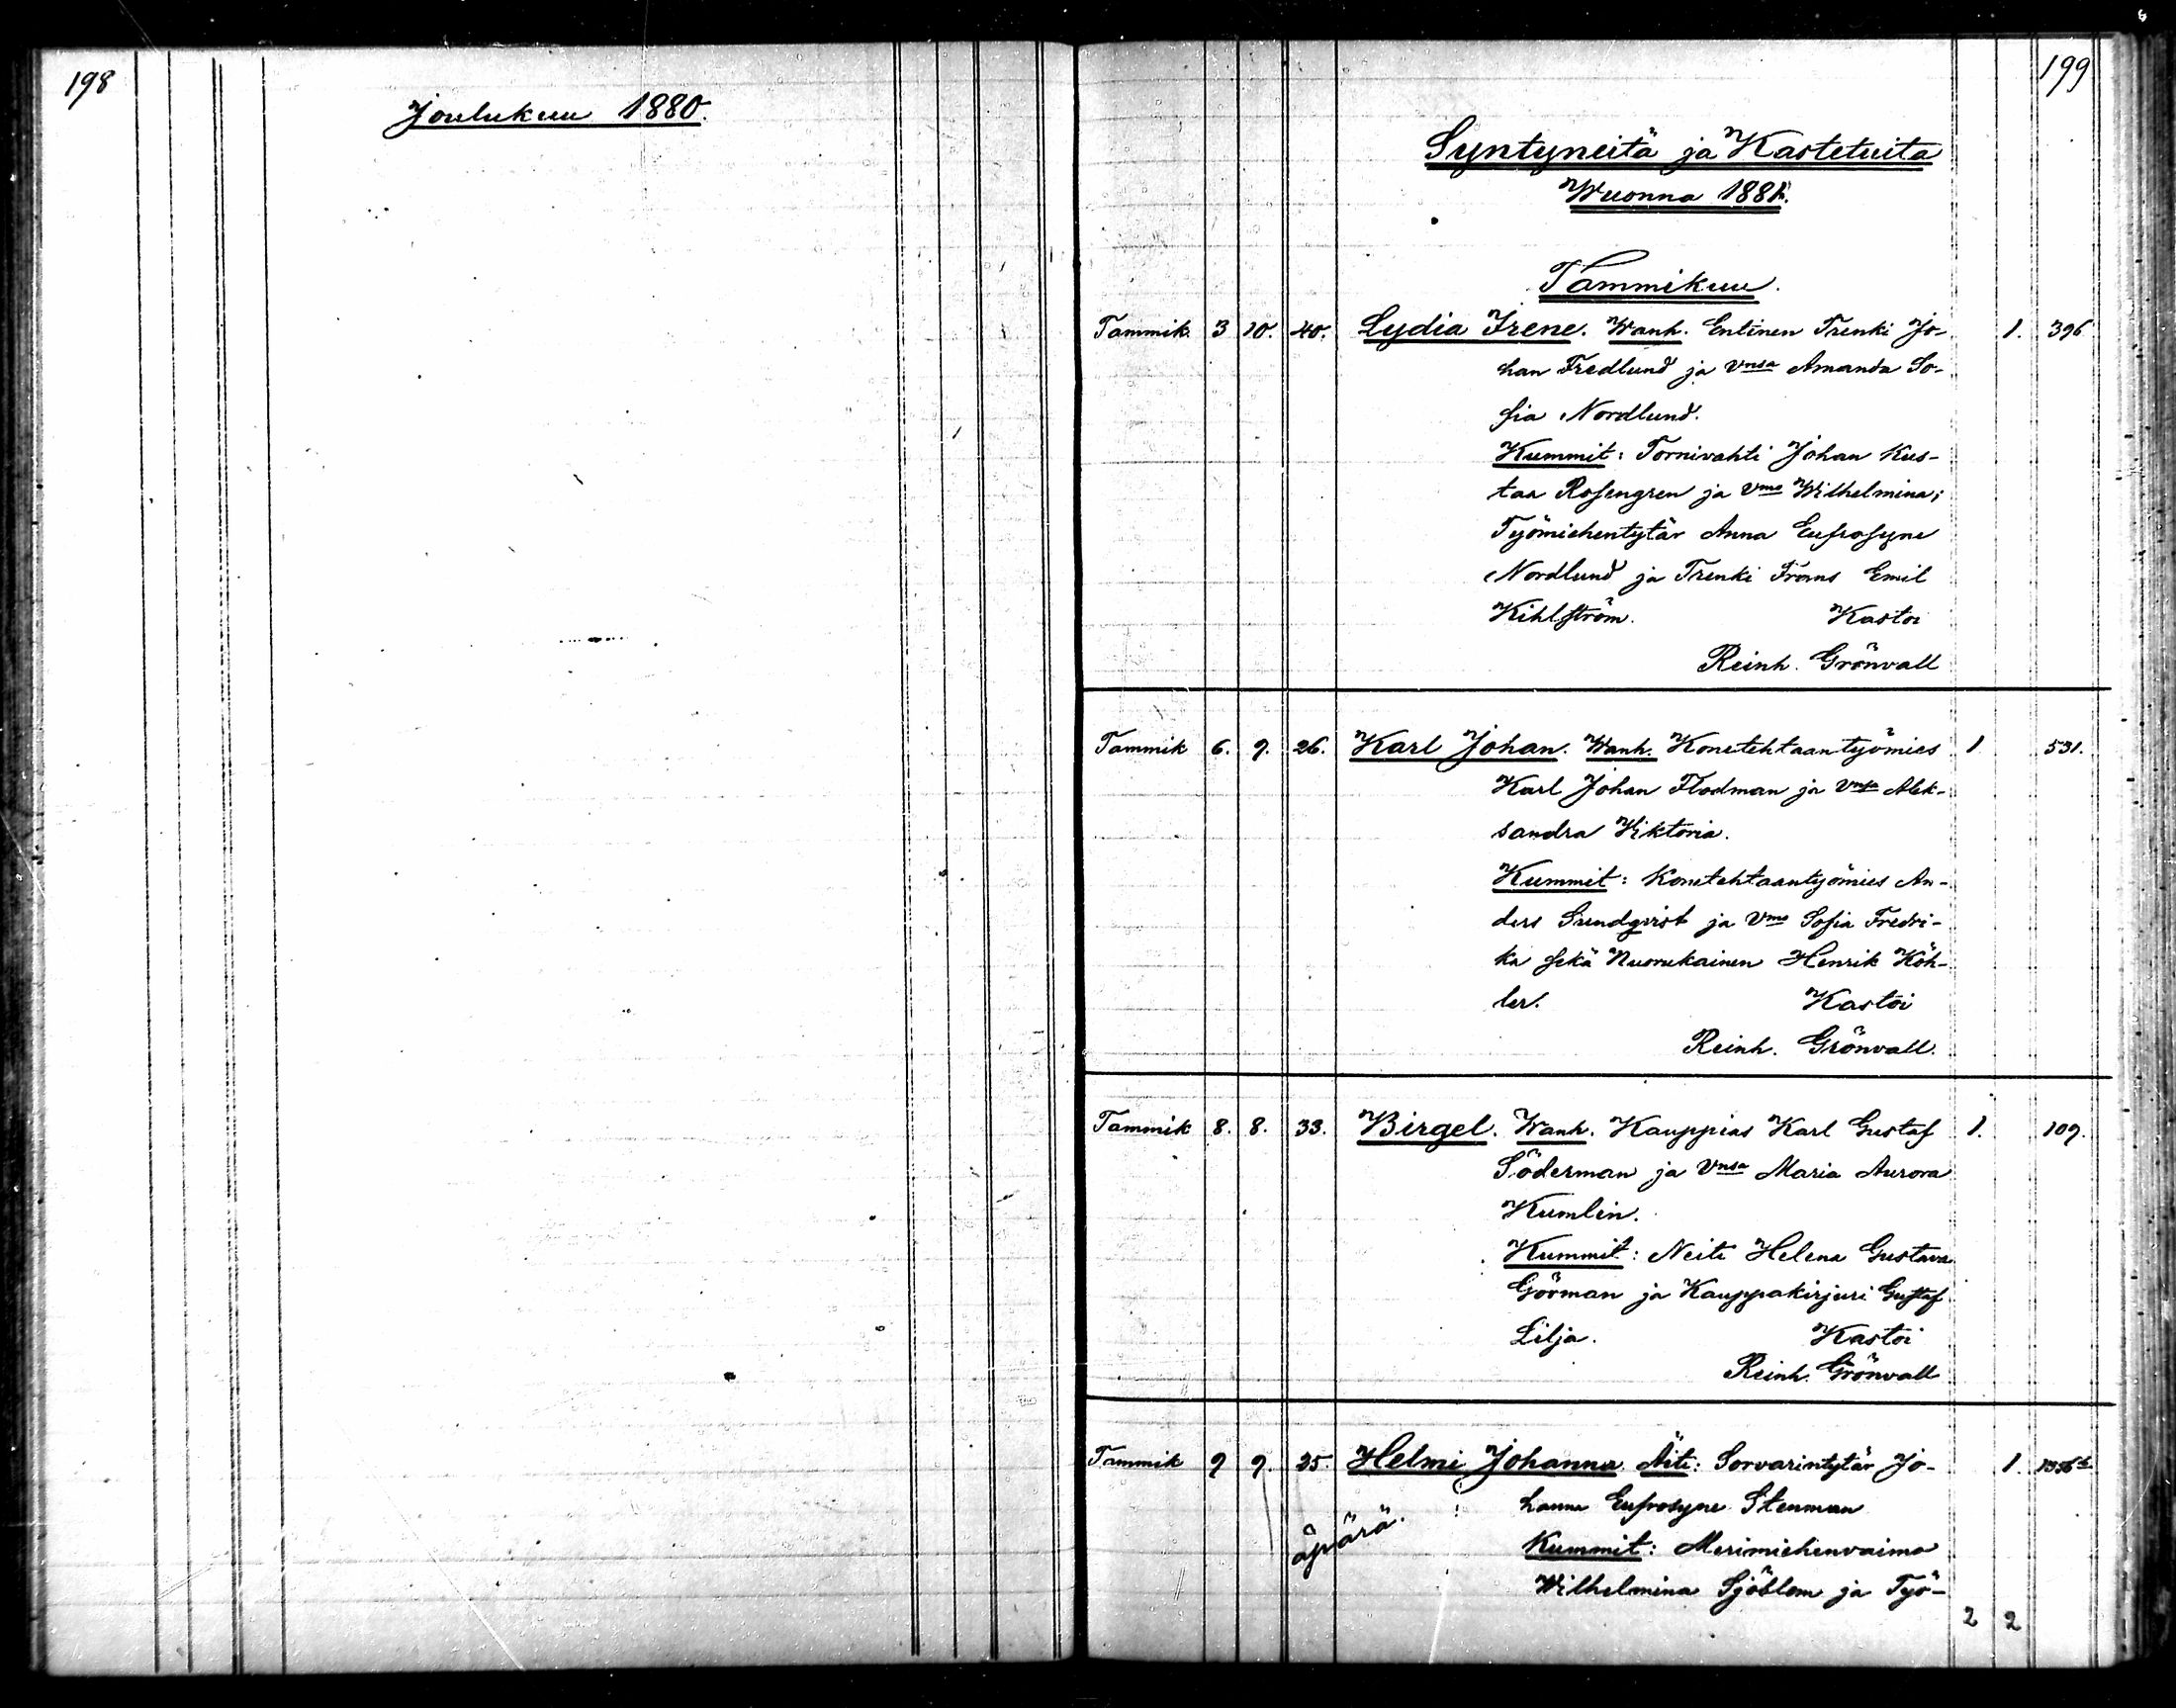 198
Joulukuu 1880.
199
Syntyneitä ja Kastetuita
Wuonna 1881.
Tammikuu.
Tammik. 3 10. 40. Lydia Irene. Wanh. Entinen Trenki Jo- 1. 396
han Fredlund ja Vnsa Amanda So-
fia Nordlund.
Kummit: Tornivahti Johan Kus-
taa Rosengren ja Vmo Wilhelmina;
Työmiehentytär Anna Eufrosyne
Nordlund ja Trenki Frans Emil
Kihlström. Kastoi
Reinh. Grönvall
Tammik 6. 9. 26. Karl Johan. Wanh. Konetehtaantyömies 1 531.
Karl Johan Flodman ja Vnsa Alek-
sandra Viktoria.
Kummit: Konetehtaantyömies An-
ders Sundqvist ja Vmo Sofia Fredri-
ka sekä Nuorukainen Henrik Köh-
ler. Kastoi
Reinh. Grönvall.
Tammik 8. 8. 33. Birgel. Wanh. Kauppias Karl Gustaf 1. 109.
Söderman ja Vnsa Maria Aurora
Kumlin.
Kummit: Neiti Helena Gustava
Görman ja Kauppakirjuri Gustaf
Lilja. Kastoi
Reinh. Grönvall
Tammik 9 9. 25 Helmi Johanna Äiti: Sorvarintytär Jo- 1.
hanna Eufrosyne Stenman
äpärä.
Kummit: Merimiehenvaimo
Wilhelmina Sjöblom ja Työ-
2 2